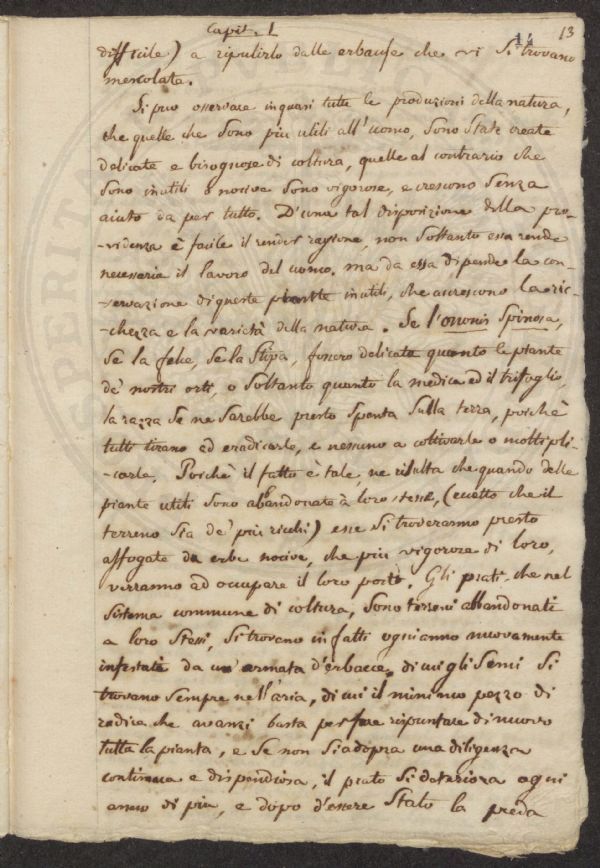 Capit. I
14 13
difficile) a ripulirlo dalle erbacse che vi si trovano
mescolata.
Si può osservare in quasi tutte le produzioni della natura,
che quelle che sono più utili all'uomo, sono state create
delicate e bisognose di coltura, quelle al contrario che
sono inutili o nocive sono vigorose, e crescono senza
aiuto da per tutto. D'una tal disposizione della pro-
-videnza è facile il render ragione non soltanto essa rende
necessaria il lavoro del uomo, ma da essa dipende la con-
-servazione di queste piante inutili, che accrescono la ric-
-chezza e la varietà della natura. Se l'ononis spinosa,
se la felce, se la stipa, fossero delicate quanto le piante
de' nostri orti, o soltanto quanto la medica ed il trifoglio,
la razza se ne sarebbe presto spenta sulla terra, poichè
tutti tirano ad eradicarle, e nessuno a coltivarle o moltipli-
-carle. Poichè il fatto è tale, ne risulta che quando delle
piante utili sono abbandonate à loro stesse, (eccetto che il
terreno sia de' più ricchi) esse si troveranno presto
affogate da erbe nocive, che più vigoroze di loro,
verranno ad occupare il loro posto. Gli prati, che nel
sistema commune di coltura, sono terreni abbandonati
a loro stessi, si trovano in fatti ogni anno nuovamente
infestati da un'armata d'erbacce, di cui gli semi si
trovano sempre nell'aria, di cui il minimo pezzo di
radica che avanzi basta per fare rispuntare di nuovo
tutta la pianta, e se non si adopra una diligenza
continua e dispendiosa, il prato si deteriora ogni
anno di più, e dopo d'essere stato la preda